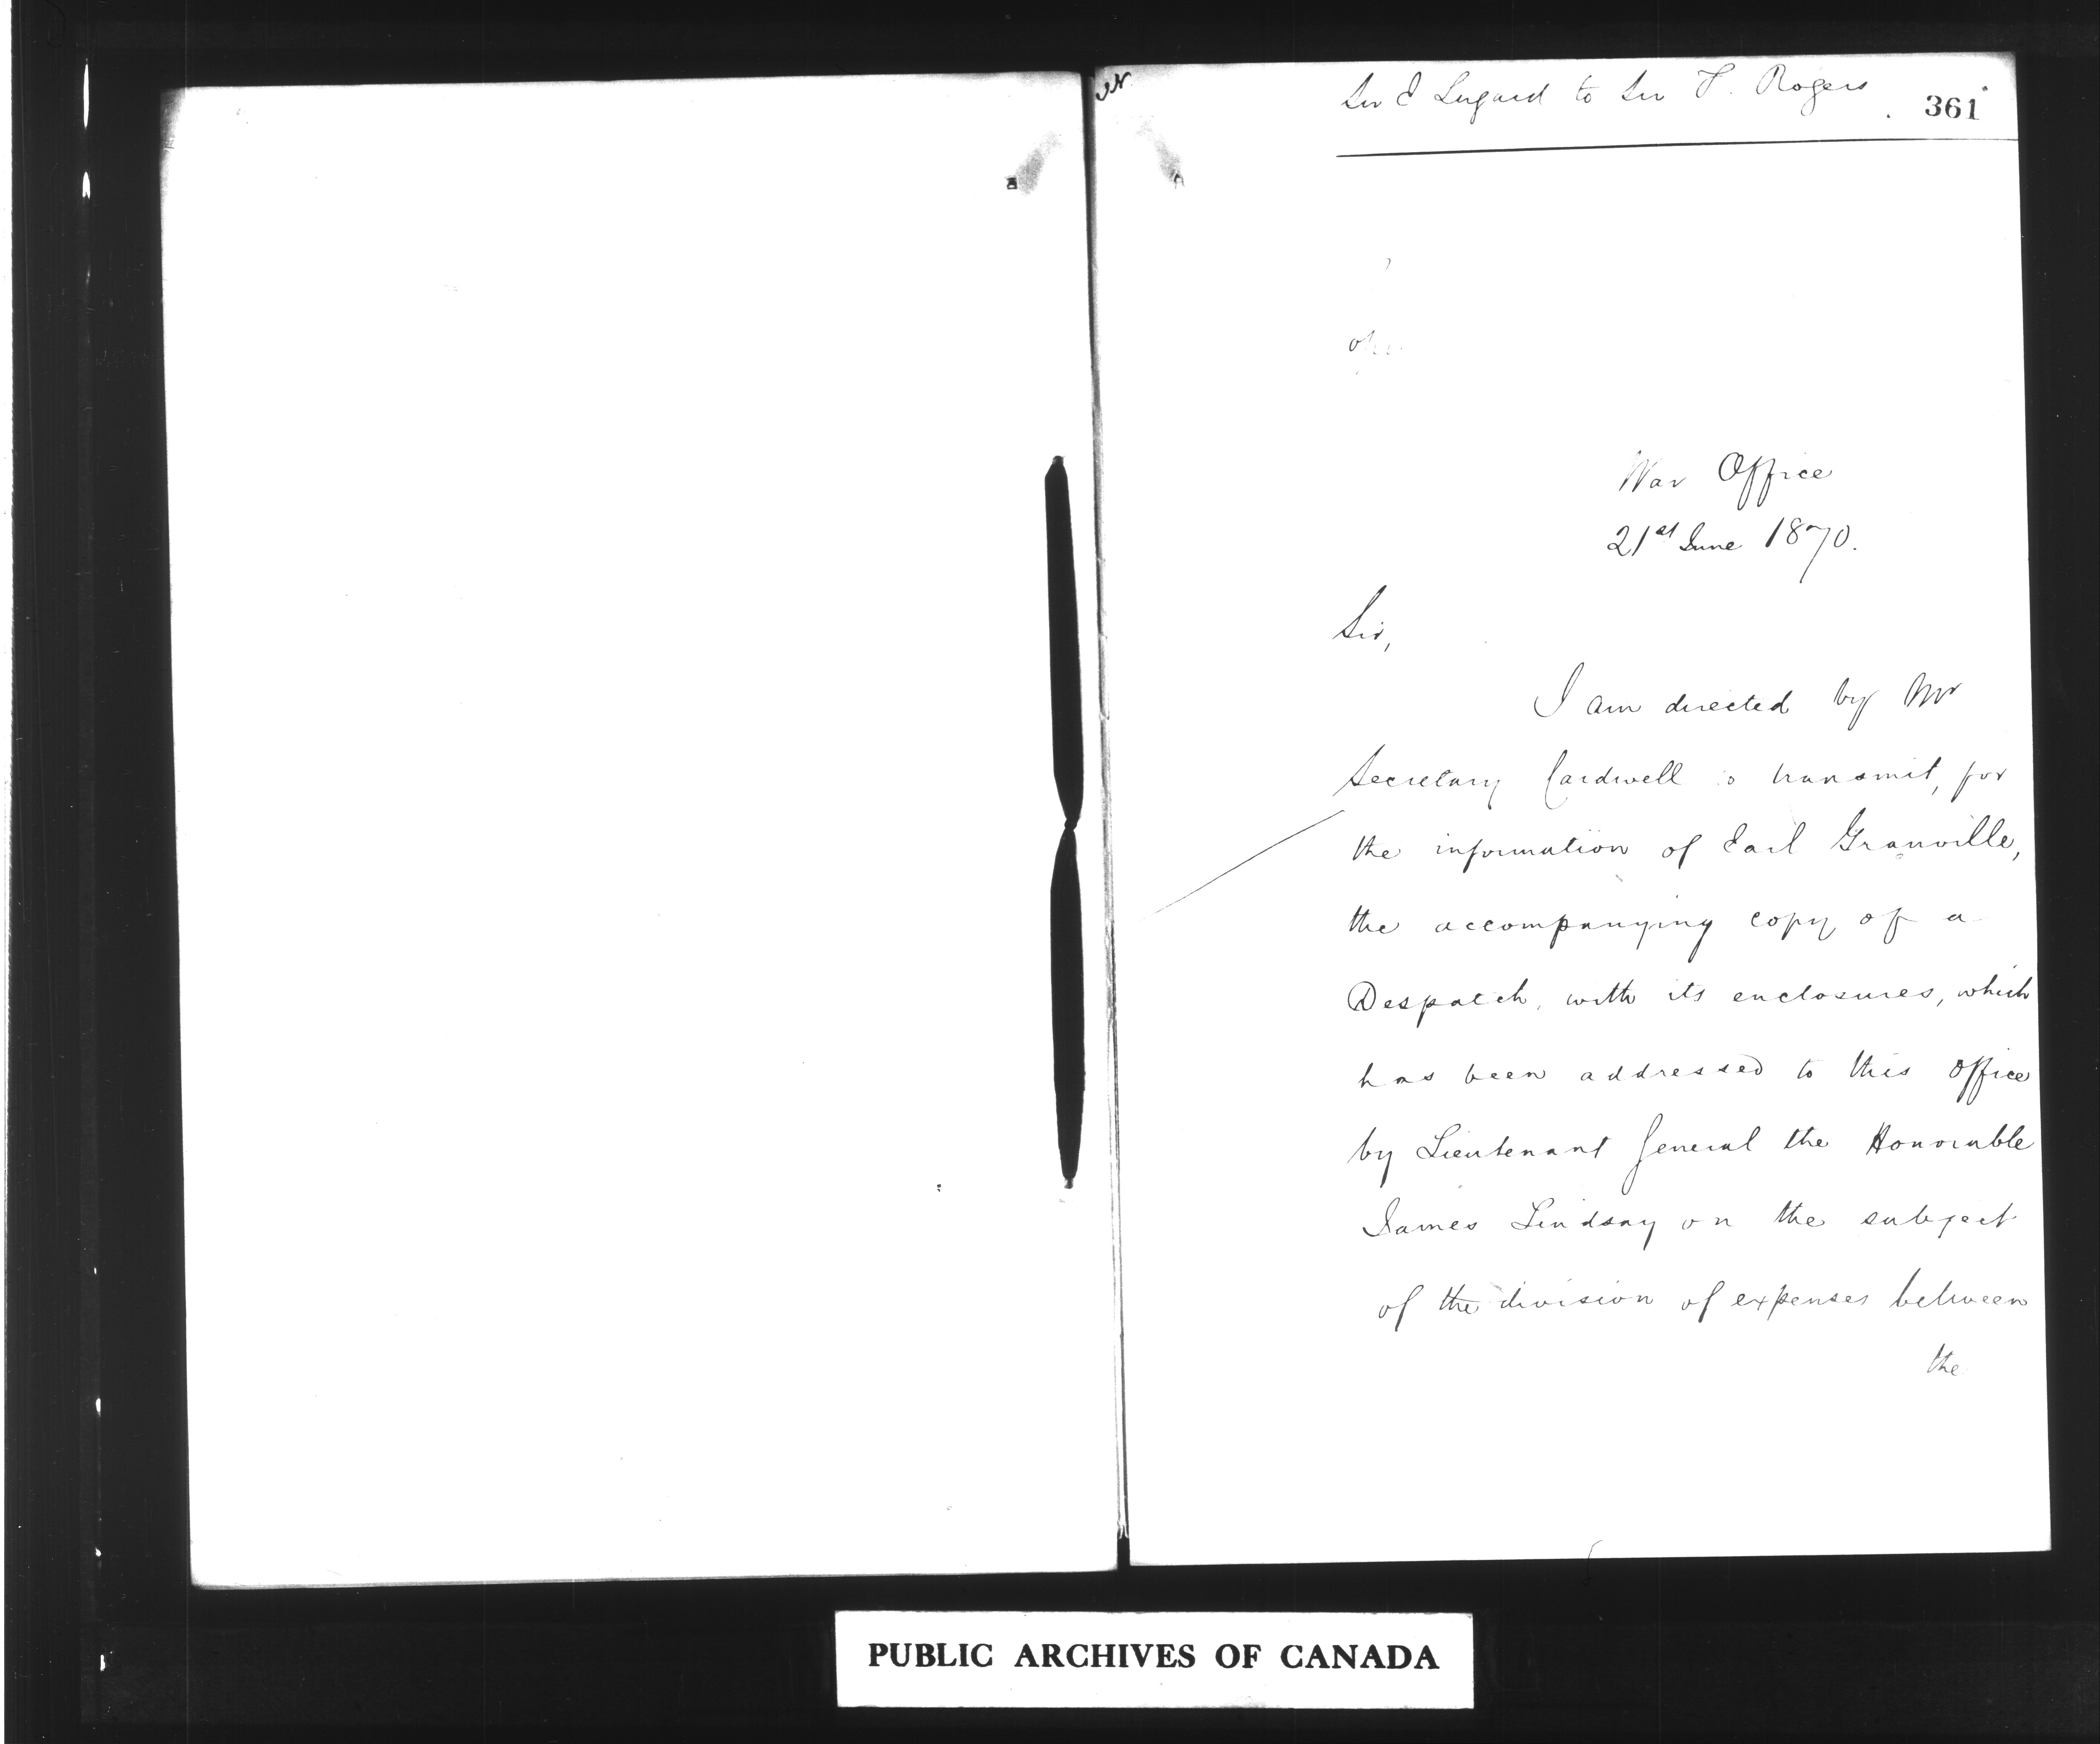 Sir E Lugard to Sir F. Rogers
361
War Office
21st June 1870.
Sir,
I am directed by Mr
Secretary Cardwell to transmit, for
the information of Earl Granville,
the accompanying copy of a
Despatch, with its enclosures, which
has been addressed to this Office
by Lieutenant General the Honorable
James Lindsay on the subject
of the division of expenses between
the
PUBLIC ARCHIVES OF CANADA